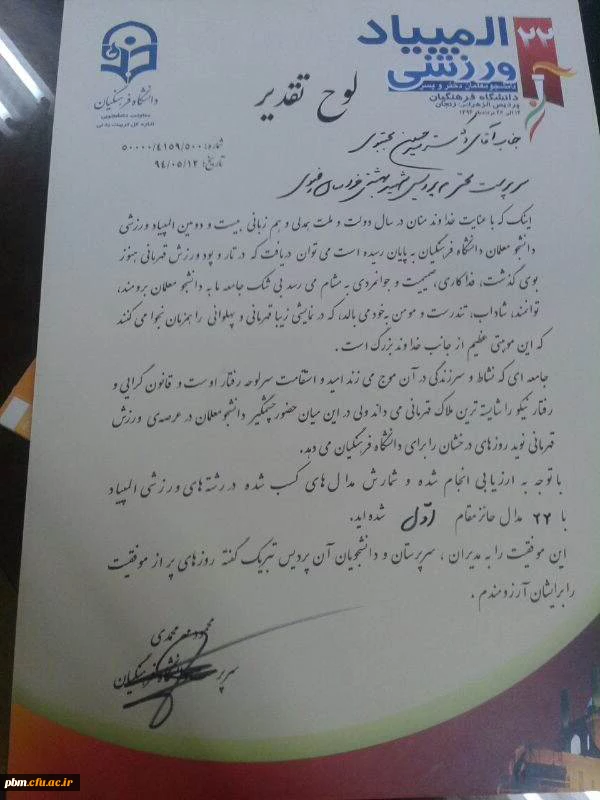 ۲۲
المپیاد
ورزشی
دانشجو معلمان دختر و پسر
دانشگاه فرهنگیان
پردیس الزهرای زنجان
دانشگاه فرهنگیان
معاونت دانشجویی
اداره کل تربیت بدنی
لوح تقدیر
شماره: ۵۰۰۰۰/۴۱۵۹/۵۰۰
تاریخ: ۹۴/۰۵/۱۲
جناب آقای دکتر سید حسین
سرپرست محترم پردیس شهید بهشتی خراسان رضوی
اینک که با عنایت خداوند منان در سال دولت و ملت همدلی و هم زبانی بیست و دومین المپیاد ورزشی
دانشجو معلمان دانشگاه فرهنگیان به پایان رسیده است می توان دریافت که در تار و پود ورزش قهرمانی هنوز
بوی گذشت، فداکاری، صمیمیت و جوانمردی به مشام می رسد بی شک جامعه ما به دانشجو معلمان برومند،
توانمند، شاداب، تندرست و مومن به خود می بالد، که در نمایشی زیبا قهرمانی و پهلوانی را همزمان نجوا می کنند
که این موهبتی عظیم از جانب خداوند بزرگ است.
جامعه ای که نشاط و سرزندگی در آن موج می زند امید و استقامت سرلوحه رفتار اوست و قانون گرایی و
رفتار نیکو را شایسته ترین ملاک قهرمانی می داند ولی در این میان حضور چشمگیر دانشجو معلمان در عرصه ی ورزش
قهرمانی نوید روزهای درخشان را برای دانشگاه فرهنگیان می دهد.
با توجه به ارزیابی انجام شده و شمارش مدال های کسب شده در رشته های ورزشی المپیاد
با ۲۲ مدال حائز مقام اول شده اید.
این موفقیت را به مدیران، سرپرستان و دانشجویان آن پردیس تبریک گفته روزهای پر از موفقیت
را برایشان آرزومندم.
محمود مهرمحمدی
سرپرست دانشگاه فرهنگیان
pbm.cfu.ac.ir